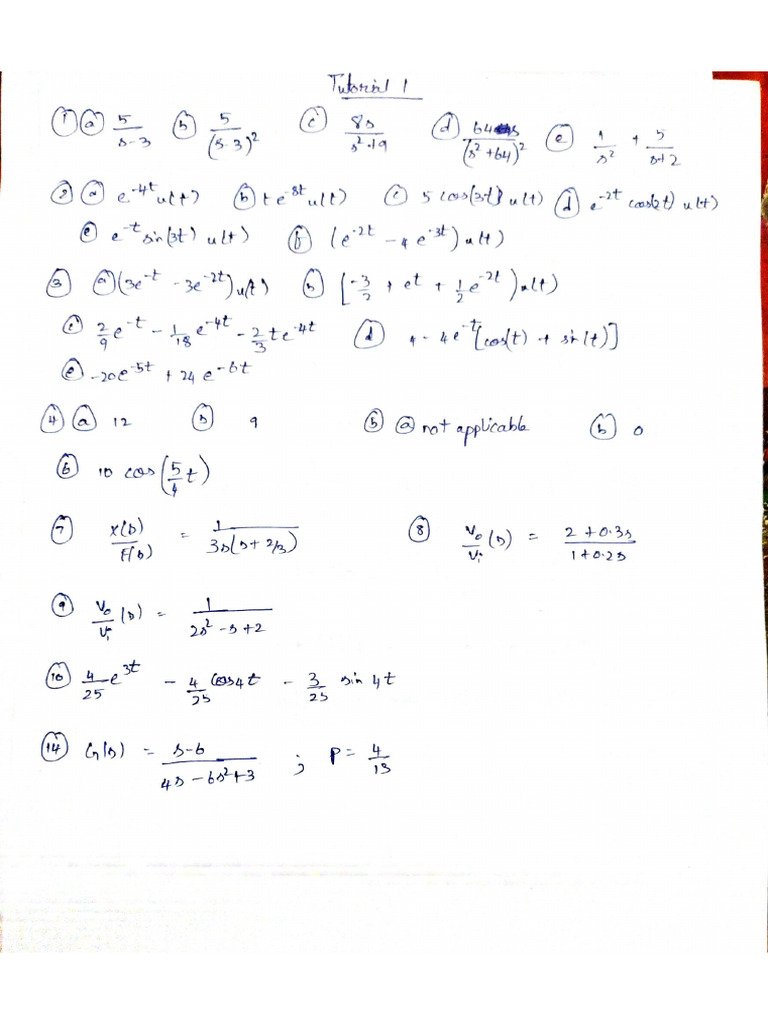 Tutorial 1
① ⓐ 5/(s-3) ⓑ 5/(s-3)² ⓒ 8s/(s²+19) ⓓ 64s/(s²+64)² ⓔ 1/s² + 5/(s+2)
② ⓐ e^-4t u(t) ⓑ te^-8t u(t) ⓒ 5 cos(3t) u(t) ⓓ e^-2t cos(2t) u(t)
ⓔ e^-t sin(3t) u(t) ⓕ (e^-2t - 4e^-3t) u(t)
③ ⓐ (3e^-t - 3e^-2t) u(t) ⓑ [-3/2 + e^t + 1/2 e^-2t) u(t)
ⓒ 2/9 e^-t - 1/18 e^-4t - 2/3 te^-4t ⓓ 4 - 4e^-t [cos(t) + sin(t)]
ⓔ -20e^-5t + 24e^-6t
④ ⓐ 12 ⓑ 9 ⑤ ⓐ not applicable ⓑ 0
⑥ 10 cos(5/4 t)
⑦ X(s)/F(s) = 1/(3s(s+2/3)) ⑧ Vo/Vi (s) = (2+0.3s)/(1+0.2s)
⑨ Vo/Vi (s) = 1/(2s²-s+2)
⑩ 4/25 e^3t - 4/25 cos4t - 3/25 sin 4t
⑭ G(s) = (s-6)/(4s-6s²+3) ; P = 4/13